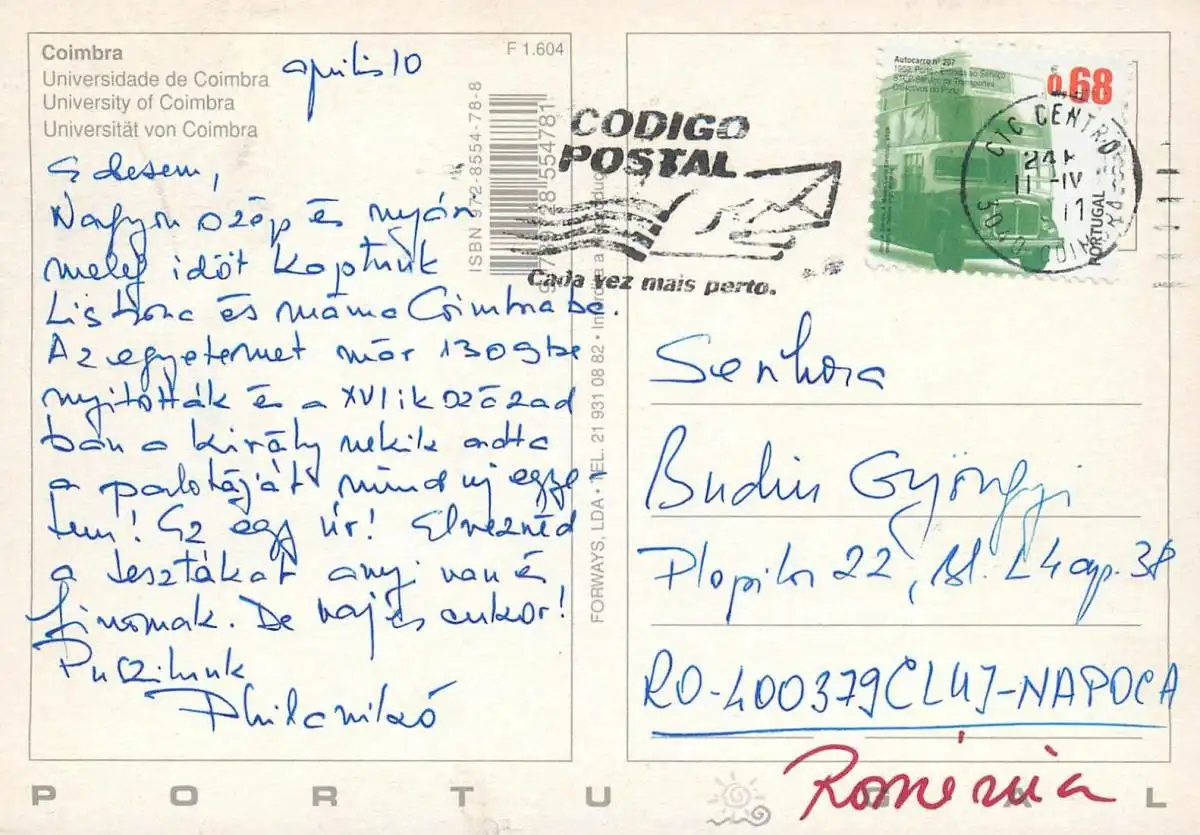 Coimbra
Universidade de Coimbra
University of Coimbra
Universität von Coimbra
április 10
F 1.604
ISBN 972-8554-78-8
Edesem,
Nagyon szép és nyári
meleg időt kaptunk
Lisbona és máma Coimbra be.
Az egyetemet már 1309 be
nyitották és a XVI ik század
ban a király nekik adta
a palotáját mind új egye
tem! Ez egy úr! Élveznéd
a tesztákat anyi van é
finomak. De vaj és cukor!
Puszilunk
FORWAYS, LDA • TEL. 21 931 08 82 •
CODIGO
POSTAL
Cada vez mais perto.
Autocarro nº 207
1959, Porto - Entrada ao Serviço
STCP-Serviço de Transportes
Colectivos do Porto
0.68
PORTUGAL
CTC CENTRO
11-IV
11
3040 COIMBRA
Senhora
Budiu Gyöngyi
Plopilor 22, bl. L4 ap. 38
RO-400379 CLUJ-NAPOCA
Roménia
PORTUGAL